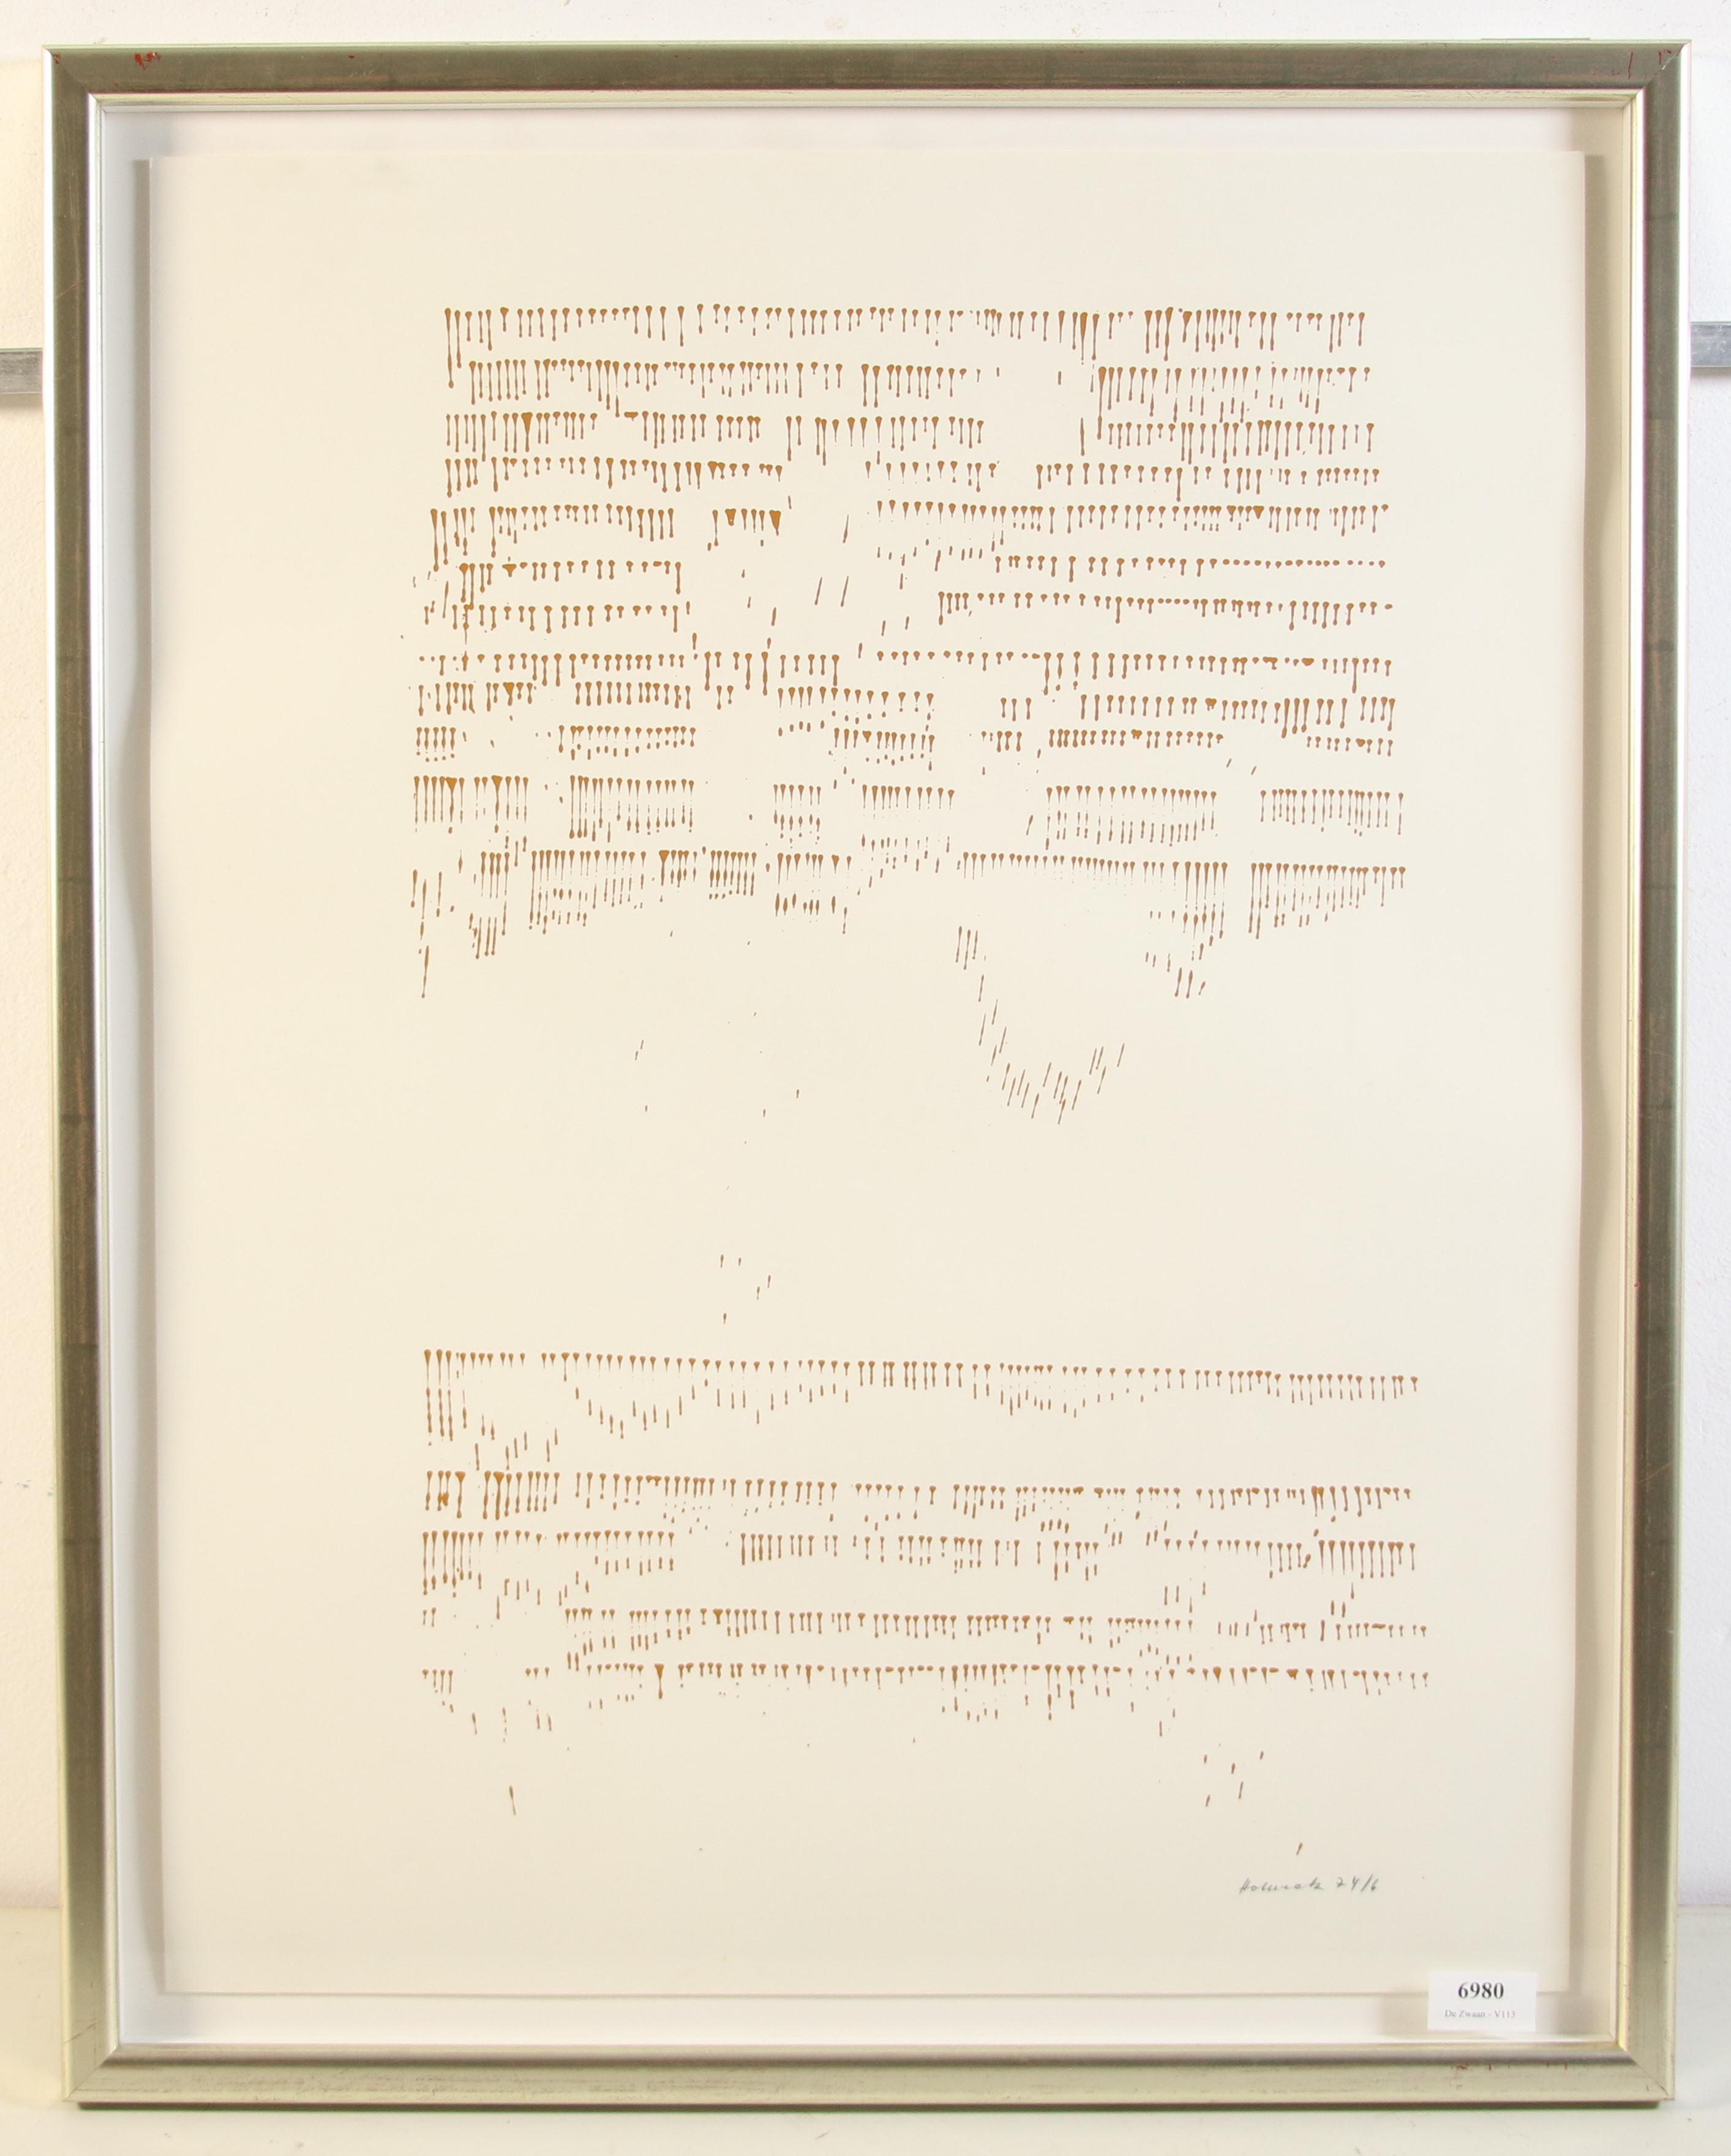 74/6
6980
De Zwaan - V113